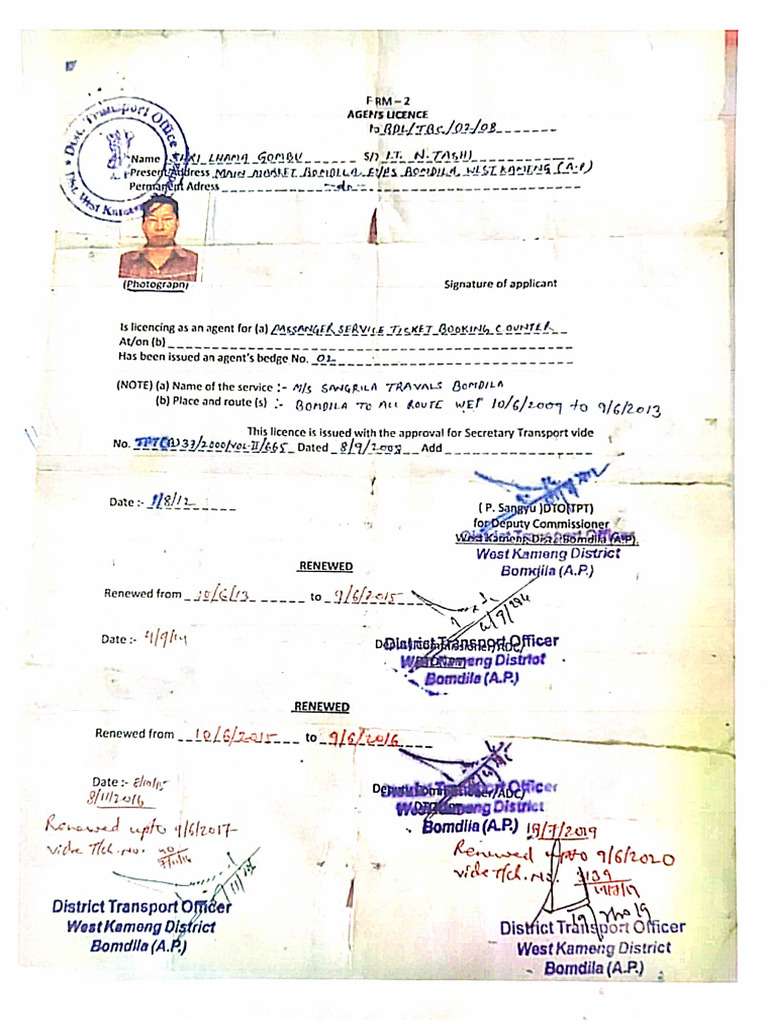 F RM – 2
AGENTS LICENCE
to BDL/TBC/07/08
Dist. Transport Office
A. P.
Name SHRI LHAMA GOMBU S/o LT. N. TASHI
Present Address MAIN MARKET BOMDILLA BOMDILA WEST KAMENG (A.P)
Permanent Adress --do--
(Photograph)
Signature of applicant
Is licencing as an agent for (a) PASSANGER SERVICE TICKET BOOKING COUNTER
At/on (b)
Has been issued an agent's bedge No. 02
(NOTE) (a) Name of the service :- M/S SANGRILA TRAVALS BOMDILA
(b) Place and route (s) :- BOMDILA TO ALL ROUTE WEF 10/6/2009 to 9/6/2013
This licence is issued with the approval for Secretary Transport vide
No. 37/2000/VOL-II/665 Dated 8/9/2008 Add
Date :- 1/8/12
( P. Sangyu )DTO(TPT)
for Deputy Commissioner
West Kameng Dist. Bomdila (A.P).
District Transport Officer
West Kameng District
Bomdila (A.P.)
RENEWED
Renewed from 10/6/13 to 9/6/2015
Date :- 4/9/14
Deputy Commissioner/ADC/
District Transport Officer
West Kameng District
Bomdila (A.P.)
RENEWED
Renewed from 10/6/2015 to 9/6/2016
Date :- 8/10/15
8/11/2016
Deputy Commissioner/ADC/
District Transport Officer
West Kameng District
Bomdila (A.P.)
Renewed upto 9/6/2017
vide T/ch. No.
District Transport Officer
West Kameng District
Bomdila (A.P.)
19/7/2019
Renewed upto 9/6/2020
vide T/ch. No. 3139
19/7/19
District Transport Officer
West Kameng District
Bomdila (A.P.)